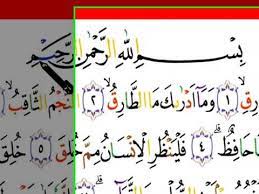 بِسْمِ اللّٰهِ الرَّحْمٰنِ الرَّحِيْمِ
رِقِۙ ١ وَمَآ اَدْرٰىكَ مَا الطَّارِقُۙ ٢ النَّجْمُ الثَّاقِبُۙ
حَافِظٌۗ ٤ فَلْيَنْظُرِ الْاِنْسَانُ مِمَّ خُلِقَ ٥ خُلِقَ